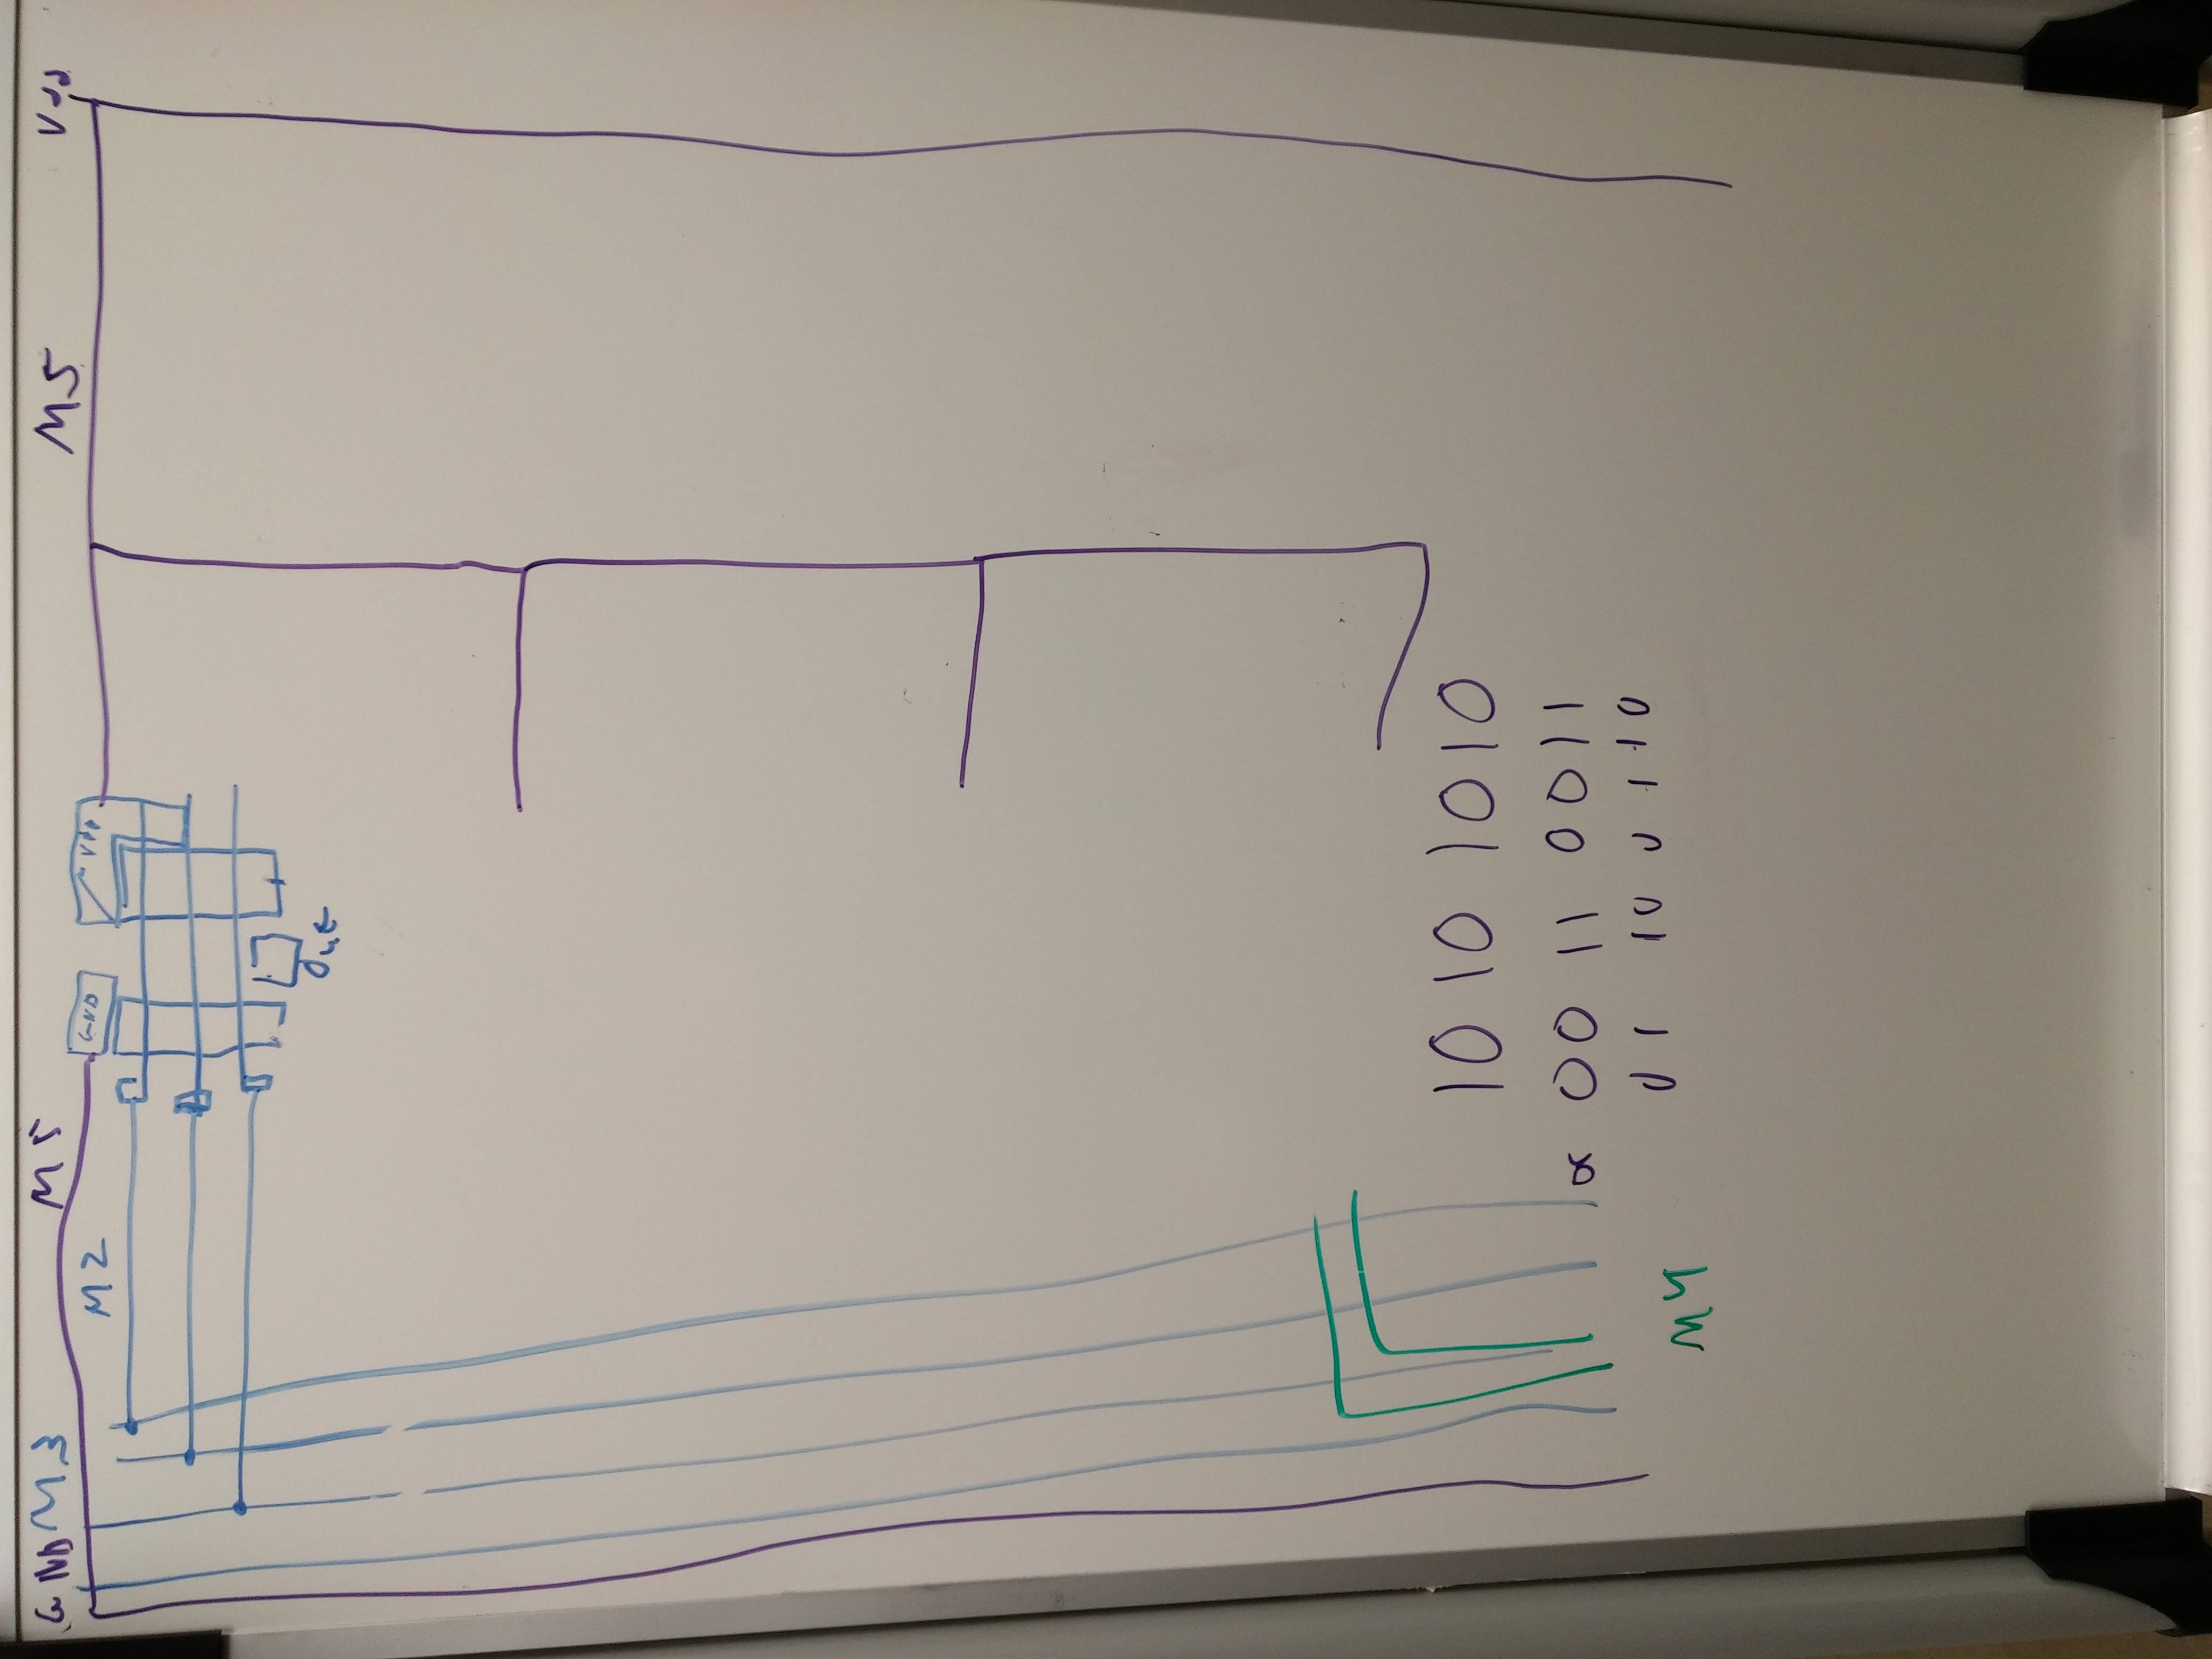 GND M3 M5 M5 Vdd
M2 GND VDD
Out
10 10 1010
or 00 11 0011
01 10 0110
M4